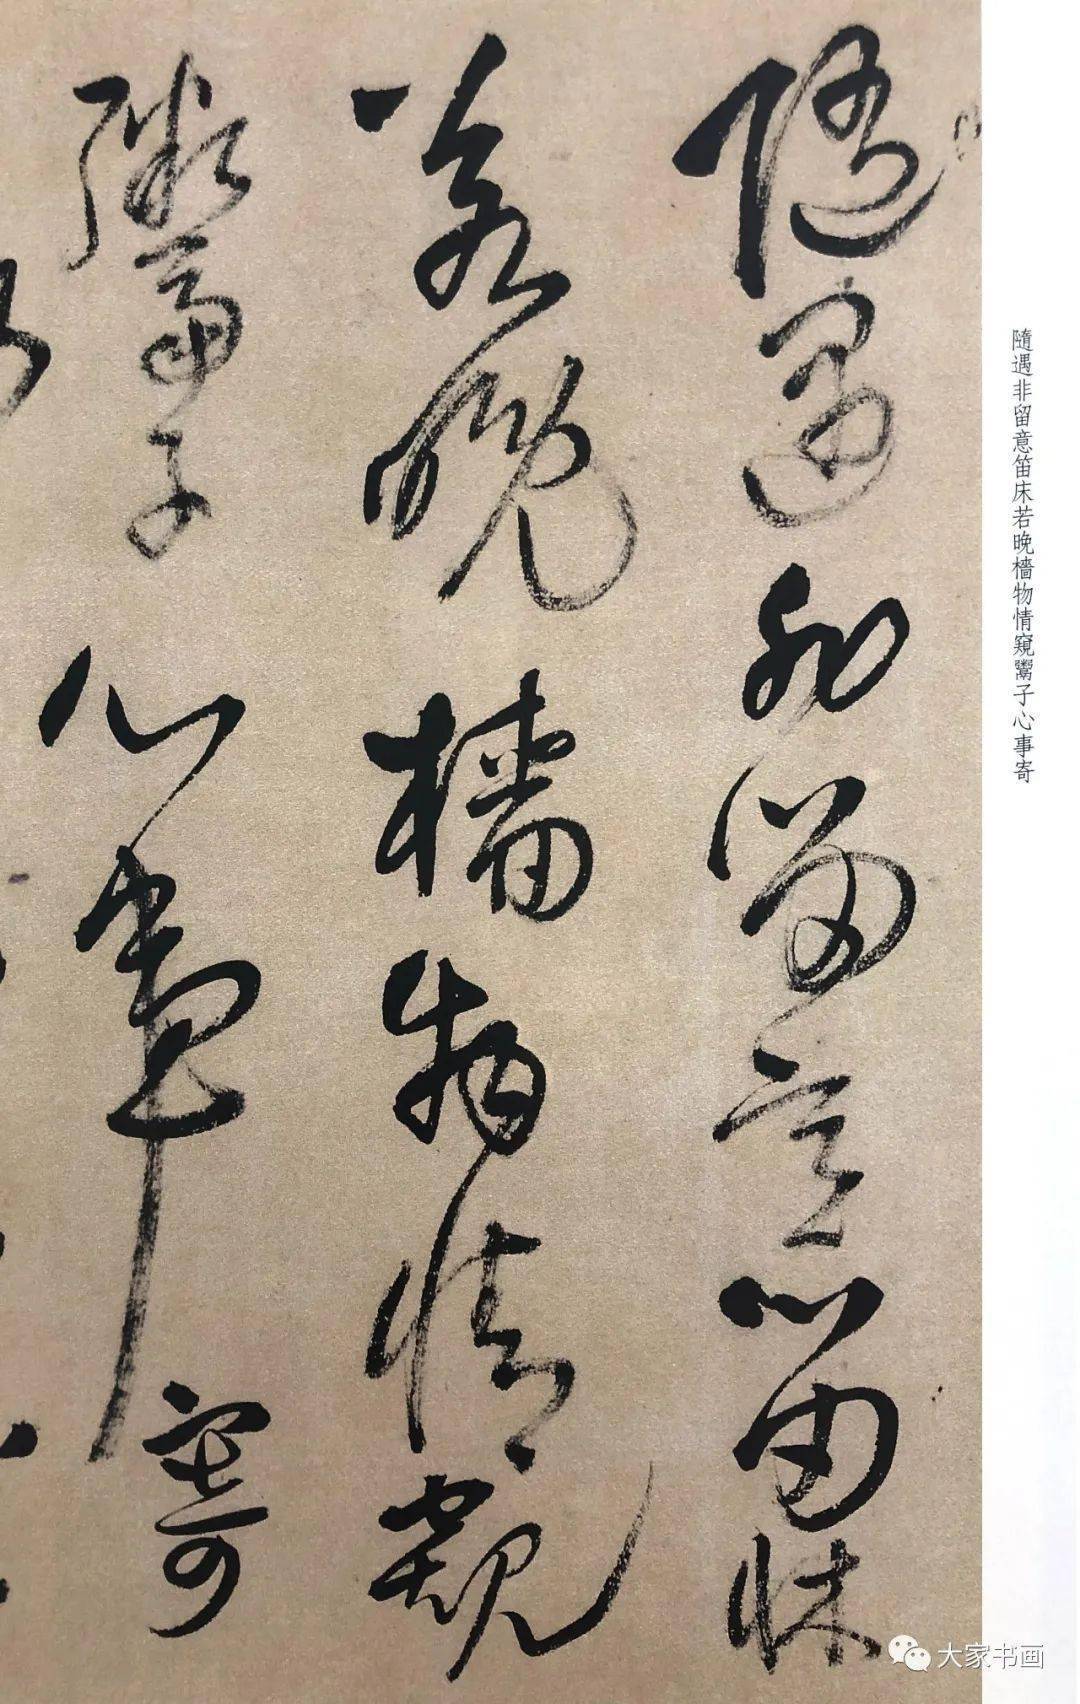 隨遇非留意笛床
若晚檣物情窺
鬻子心事寄
隨遇非留意笛床若晚檣物情窺鬻子心事寄
大家书画